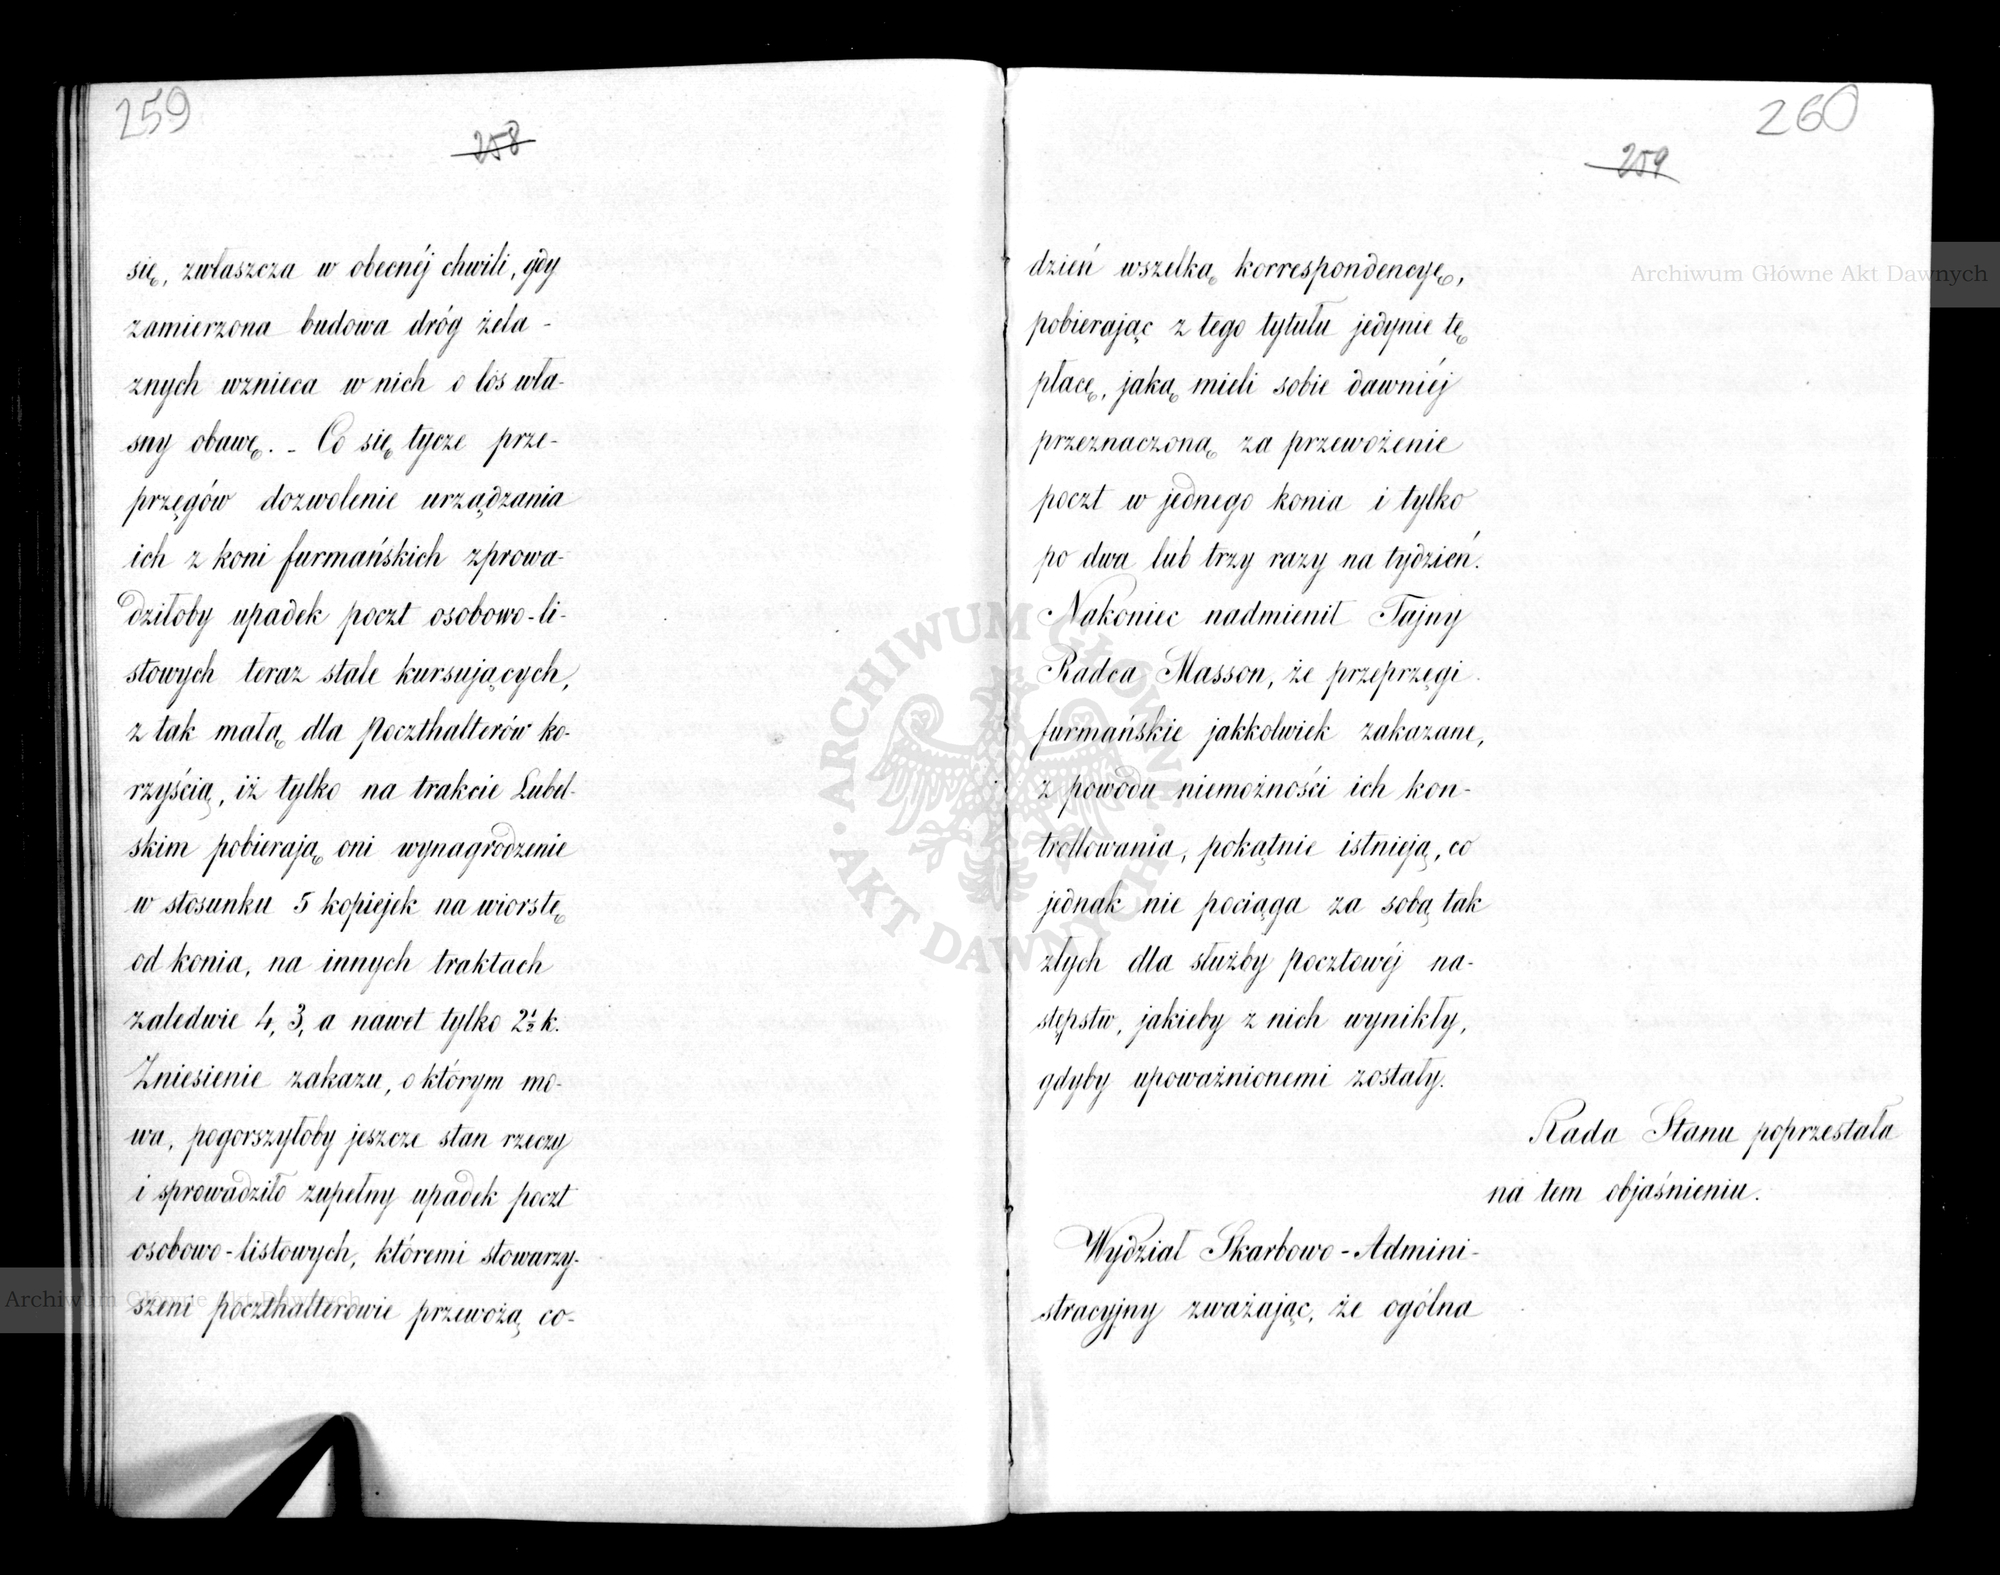 259
258
się, zwłaszcza w obecnéj chwili, gdy
zamierzona budowa dróg żela-
znych wznieca w nich o los wła-
sny obawę. - Co się tycze prze-
przęgów dozwolenie urządzania
ich z koni furmańskich zprowa-
dziłoby upadek poczt osobowo-li-
stowych teraz stale kursujących,
z tak małą dla Poczthalterów ko-
rzyścią, iż tylko na trakcie Lubel-
skim pobierają oni wynagrodzenie
w stosunku 5 kopiejek na wiorstę
od konia, na innych traktach
zaledwie 4, 3, a nawet tylko 2½ k.
Zniesienie zakazu, o którym mo-
wa, pogorszyłoby jeszcze stan rzeczy
i sprowadziło zupełny upadek poczt
osobowo-listowych, któremi stowarzy-
szeni poczthalterowie przewożą co-
260
259
dzień wszelką korrespondencyę,
pobierając z tego tytułu jedynie tę
płacę, jaką mieli sobie dawniéj
przeznaczoną za przewożenie
poczt w jednego konia i tylko
po dwa lub trzy razy na tydzień.
Nakoniec nadmienił Tajny
Radca Masson, że przeprzęgi
furmańskie jakkolwiek zakazane,
z powodu niemożności ich kon-
trollowania, pokątnie istnieją, co
jednak nie pociąga za sobą tak
złych dla służby pocztowéj na-
stępstw, jakieby z nich wynikły,
gdyby upoważnionemi zostały.
Rada Stanu poprzestała
na tem objaśnieniu.
Wydział Skarbowo-Admini-
stracyjny zważając, że ogólna
Archiwum Główne Akt Dawnych
ARCHIWUM GŁÓWNE
AKT DAWNYCH
Archiwum Główne Akt Dawnych